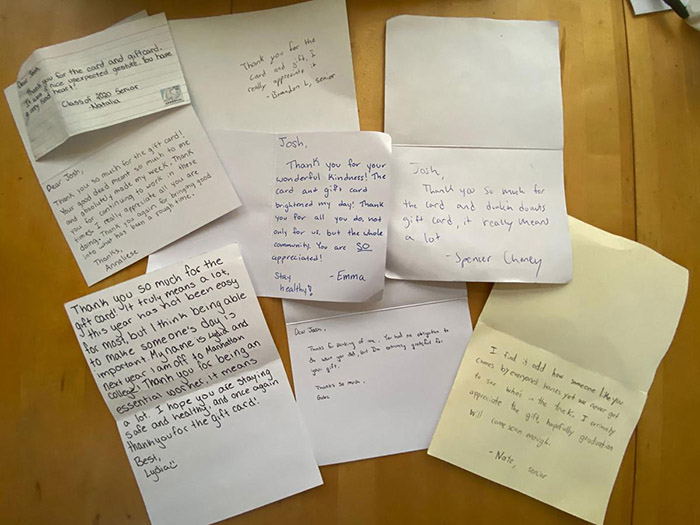 Dear Josh,
Thank you for the card and giftcard.
It was a nice unexpected gesture. You have
a very kind heart!
Class of 2020 Senior
Natalia
Dear Josh,
Thank you so much for the gift card!
Your good deed meant so much to me
and absolutely made my week. Thank
you for continuing to work in these
times. I really appreciate all you are
doing. Thank you again for bringing good
into what has been a rough time!
Thanks,
Annaliese
Thank you for the
card and gift, I
really appreciate it
- Brandon L, senior
Josh,
Thank you for your
wonderful kindness! The
card and gift card
brightened my day! Thank
you for all you do, not
only for us, but the whole
community. You are SO
appreciated!
Stay - Emma
healthy!
Josh,
Thank you so much for
the card and dunkin donuts
gift card, it really means
a lot
- Spencer Chaney
Thank you so much for the
gift card! It truly means a lot,
this year has not been easy
for most, but I think being able
to make someone's day is
important. My name is Lydia and
next year I am off to Manhattan
college! Thank you for being an
essential worker, it means
a lot. I hope you are staying
safe and healthy, and once again
thank you for the gift card!
Best,
Lydia
Dear Josh,
Thanks for thinking of me. You had no obligation to
do what you did, but I'm extremely grateful for
your gift.
Thanks so much,
I find it odd how someone like you
comes by everyones houses yet we never get
to see who's in the truck. I
appreciate the gift, hopefully graduation
will come soon enough.
- Nate, senior